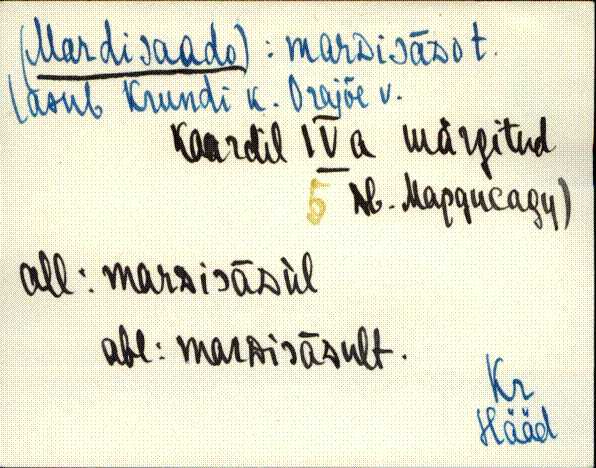 (Mardisaado) : marᴅisāᴅo t.
(asub Krundi k. Orajõe v.
Kaardil IV a märgitud
5 № Мардисаду)
all : marᴅisāᴅùl
abl : marᴅisāᴅult.
Kr
Hääd